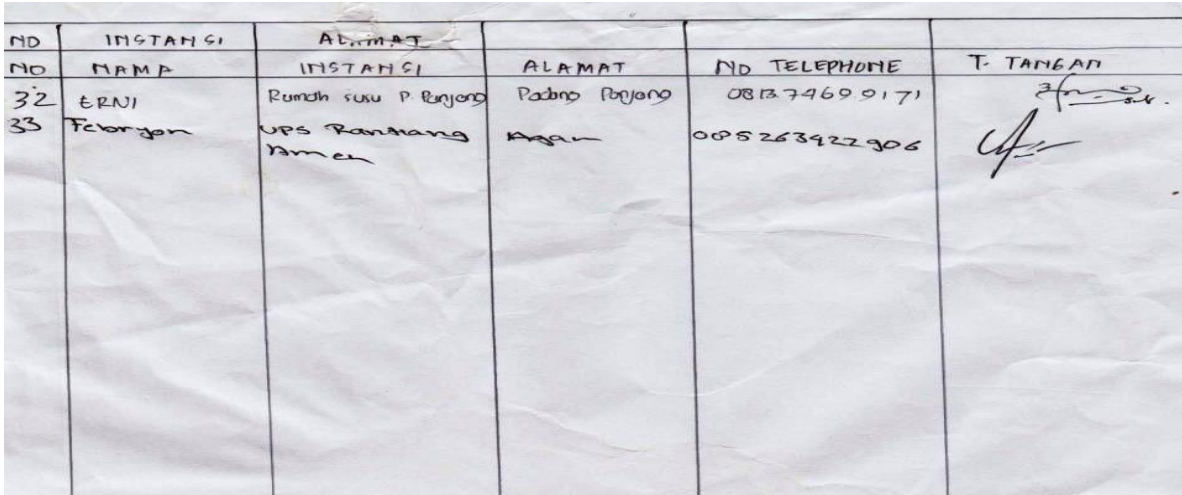 NO INSTANSI ALAMAT
NO NAMA INSTANSI ALAMAT NO TELEPHONE T. TANGAN
32 ERNI Rumah susu P. Panjang Padang Panjang 081374699171
33 Febryon UPS Agam 085263422906